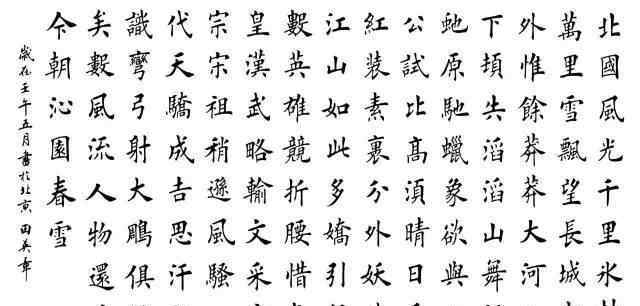 北國風光千里氷
萬里雪飄望長城
外惟餘莽莽大河
下頓失滔滔山舞
虵原馳蠟象欲與
公試比髙須晴日
紅裝素裹分外妖
江山如此多嬌引
數英雄競折腰惜
皇漢武略輸文采
宗宋祖稍遜風騷
代天驕成吉思汗
識彎弓射大鵰俱
矣數風流人物還
今朝沁園春雪
歲在壬午五月書於北京 田英章